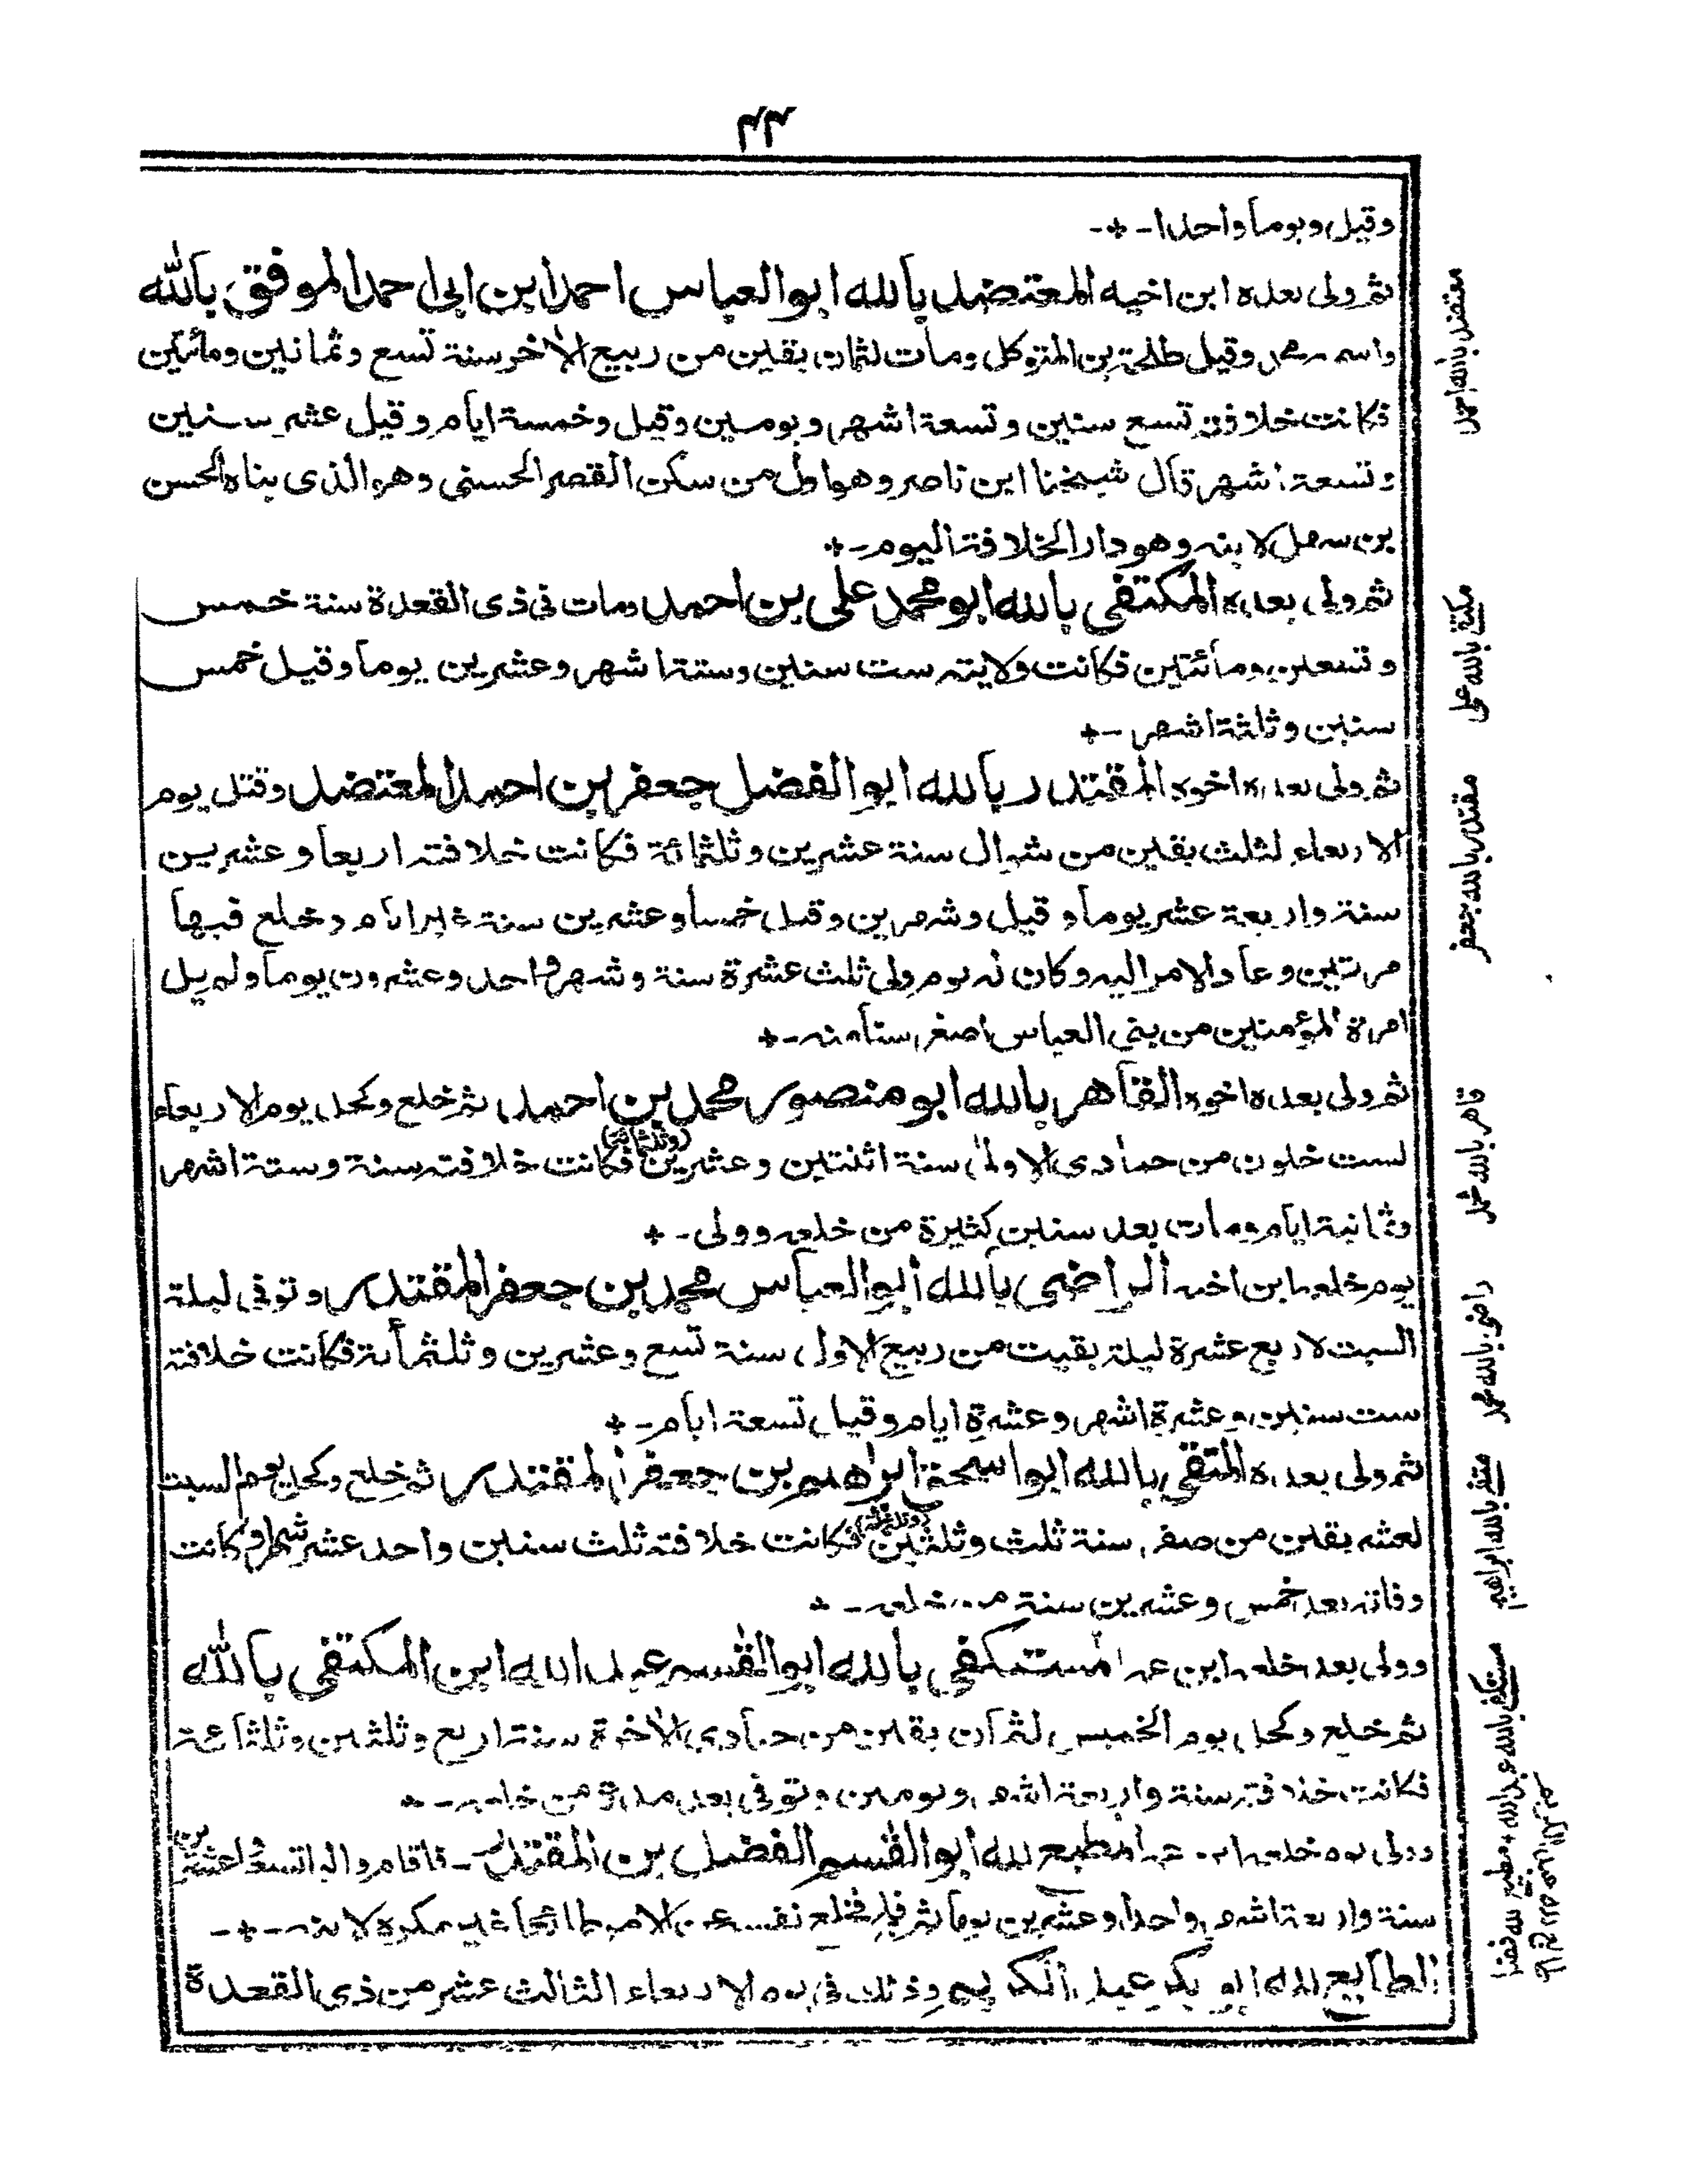 ٤٤
وقيل ويوماً واحدا - * -
ثم ولى بعده ابن اخيه المعتضد بالله ابو العباس احمد ابن ابى احمد الموفق بالله
واسمه محمد وقيل طلحة بن المتوكل ومات لثمان بقين من ربيع الاٰخر سنة تسع وثمانين ومائتين
فكانت خلافته تسع سنين وتسعة اشهر ويومين وقيل وخمسة ايام وقيل عشر سنين
وتسعة اشهر قال شيخنا ابن ناصر وهو اول من سكن القصر الحسنى وهو الذى بناه الحسن
بن سهل لابنته وهو دار الخلافة اليوم - *
ثم ولى بعده المكتفى بالله ابو محمد على بن احمد ومات فى ذى القعدة سنة خمس
وتسعين ومائتين فكانت ولايته ست سنين وستة اشهر وعشرين يوماً وقيل خمس
سنين وثلثة اشهر - *
ثم ولى بعده اخوه المقتدر بالله ابو الفضل جعفر بن احمد المعتضد وقتل يوم
الاربعاء لثلث بقين من شوال سنة عشرين وثلثمائة فكانت خلافته اربعاً وعشرين
سنة واربعة عشر يوماً وقيل وشهرين وقيل خمساً وعشرين سنة غير ايام وخلع فيها
مرتين وعاد الامر اليه وكان له يوم ولى ثلث عشرة سنة وشهر واحد وعشرون يوماً ولم يل
امرة المؤمنين من بنى العباس اصغر سناً منه - *
ثم ولى بعده اخوه القاهر بالله ابو منصور محمد بن احمد ثم خلع وكحل يوم الاربعاء
لست خلون من جمادى الاولىٰ سنة اثنتين وعشرين (وثلثمائة) فكانت خلافته سنة وستة اشهر
وثمانية ايام ومات بعد سنين كثيرة من خلعه وولى - *
يوم خلعه ابن اخيه الراضى بالله ابو العباس محمد بن جعفر المقتدر وتوفى ليلة
السبت لاربع عشرة ليلة بقيت من ربيع الاول سنة تسع وعشرين وثلثمائة فكانت خلافته
ست سنين وعشرة اشهر وعشرة ايام وقيل تسعة ايام - *
ثم ولى بعده المتقى بالله ابو اسحق ابراهيم بن جعفر المقتدر ثم خلع وكحل يوم السبت
لعشر بقين من صفر سنة ثلث وثلثين (وثلثمائة) فكانت خلافته ثلث سنين واحد عشر شهراً وكانت
وفاته بعد خمس وعشرين سنة من خلعه - *
وولى بعد خلعه ابن عمه المستكفى بالله ابو القٰسم عبد الله ابن المكتفى بالله
ثم خلع وكحل يوم الخميس لثمان بقين من جمادى الاٰخرة سنة اربع وثلثين وثلثمائة
فكانت خلافته سنة واربعة اشهر ويومين وتوفى بعد مدة من خلعه - *
وولى يوم خلعه ابن عمه المطيع لله ابو القٰسم الفضل بن المقتدر - فاقام واليا تسعاً وعشرين
سنة واربعة اشهر واحدا وعشرين يوماً ثم فلج فخلع نفسه عن الامر طائعاً غير مكره لابنه - * -
الطايع لله ابو بكر عبد الكريم وذلك فى يوم الاربعاء الثالث عشر من ذى القعدة
معتضد بالله احمد
مكتفى بالله على
مقتدر بالله جعفر
قاهر بالله محمد
راضى بالله محمد
متقى بالله ابراهيم
مستكفى بالله عبد الله * مطيع لله فضل